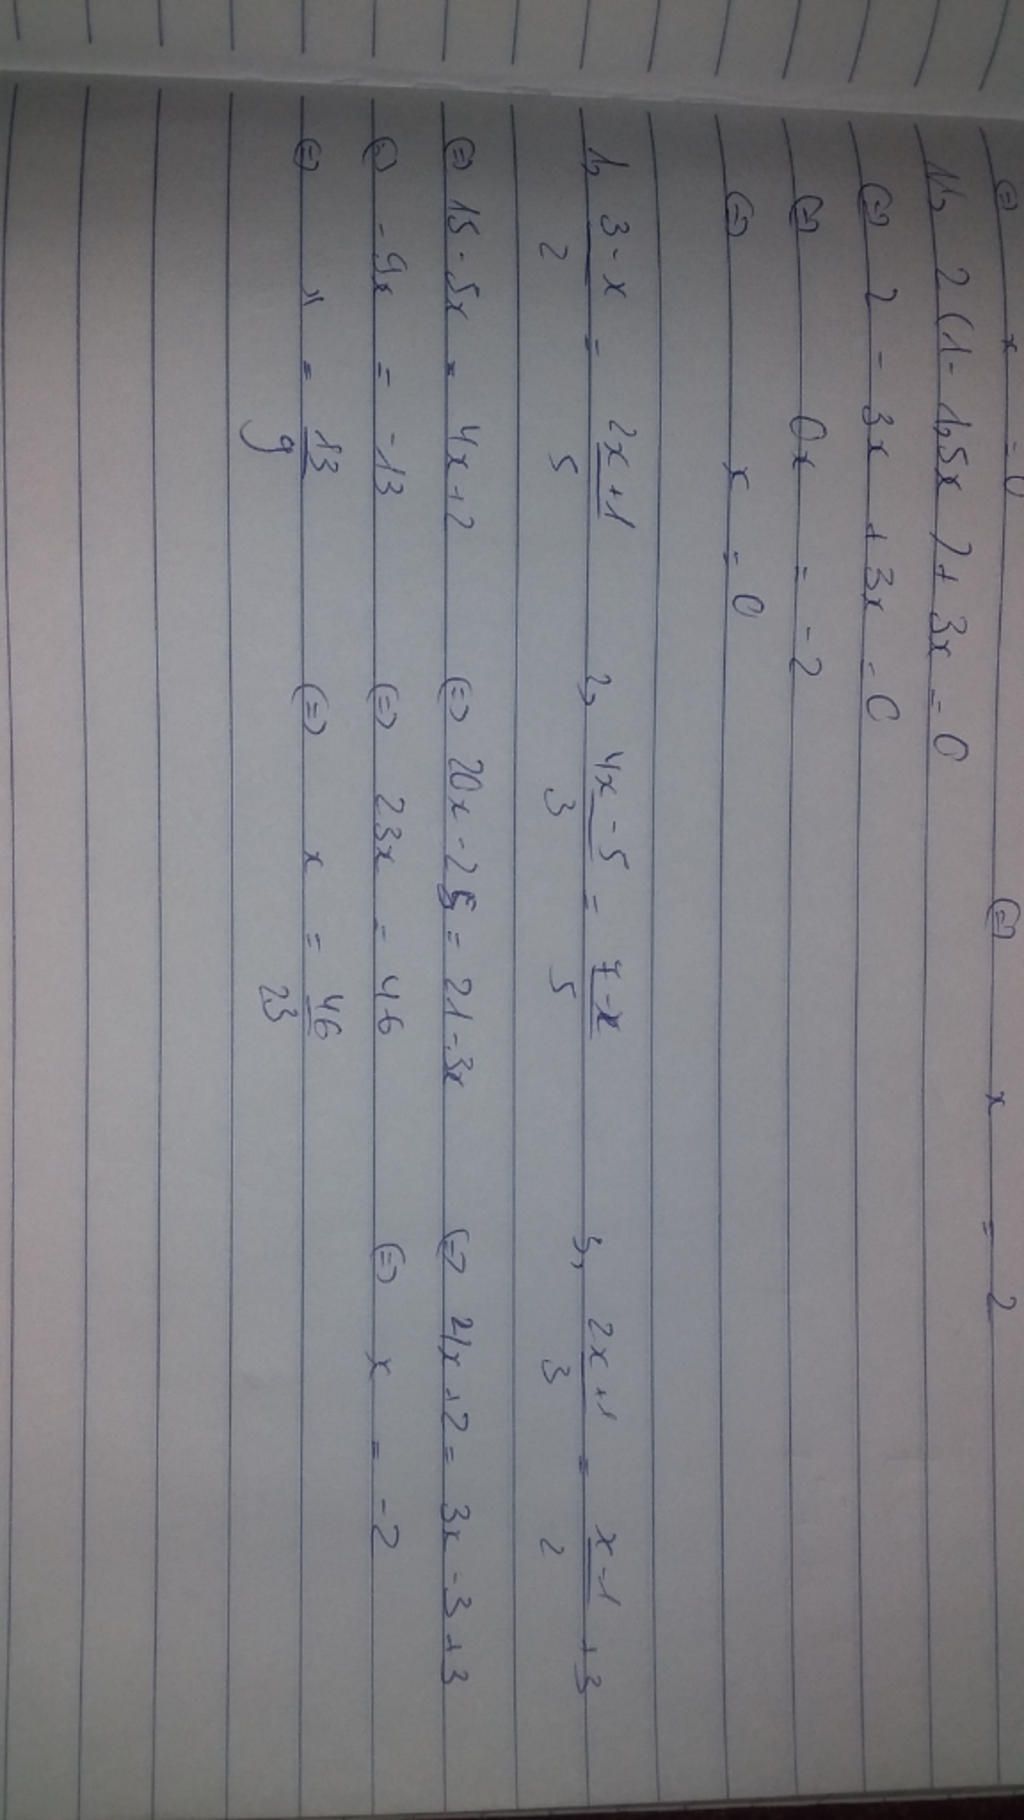 ⇔ x = 0 ⇔ x = 2
11, 2(1 - 1,5x) + 3x = 0
⇔ 2 - 3x + 3x = 0
⇔ 0x = -2
⇔ x = 0
1, 3-x/2 = 2x+1/5 2, 4x-5/3 = 7-x/5 3, 2x+1/3 = x-1/2 + 3
⇔ 15 - 5x = 4x+2 ⇔ 20x - 25 = 21 - 3x ⇔ 4x+2 = 3x - 3 + 3
⇔ -9x = -13 ⇔ 23x = 46 ⇔ x = -2
⇔ x = 13/9 ⇔ x = 46/23